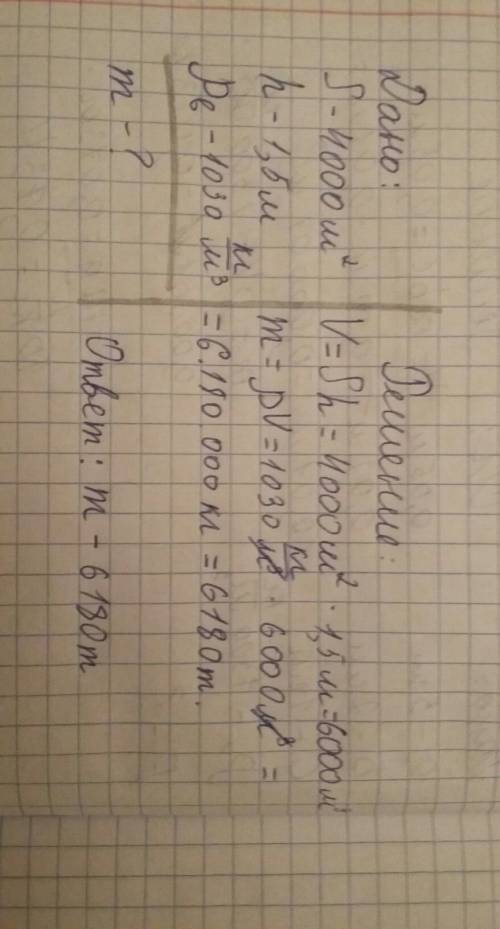 Дано:
S - 4000 м²
h - 1,5 м
ρв - 1030 кг/м³
m - ?
Решение:
V = Sh = 4000 м² · 1,5 м = 6000 м³
m = ρV = 1030 кг/м³ · 6000 м³ =
= 6.180.000 кг = 6180 т.
Ответ: m - 6180 т